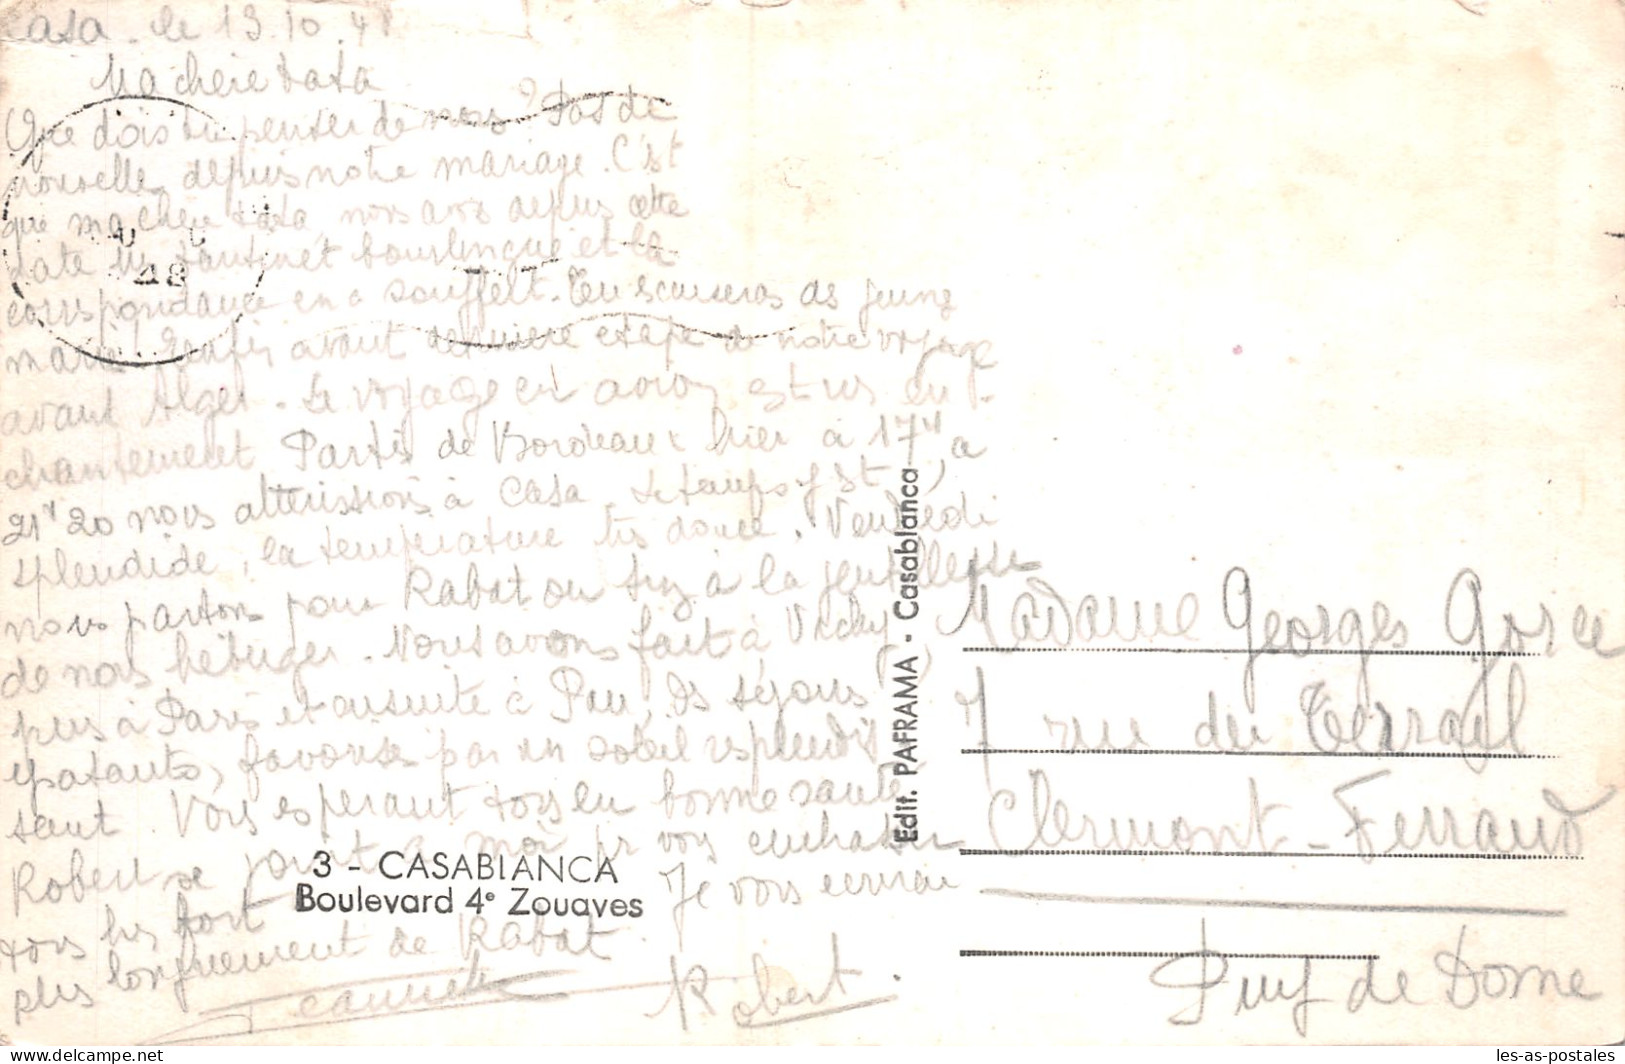 Casa. le 13.10.48
Ma chère tata
Que dois tu penser de nous? Pas de
nouvelle depuis notre mariage. C'est
que ma chère tata, nous avons depuis cette
date un tantinet bourlingué et la
correspondance en a souffert. Tu excuseras des jeunes
mariés. Enfin, avant dernière étape de notre voyage
avant Alger. Le voyage en avion est un en-
chantement Partis de Bordeaux hier à 17H à
21H20 nous atterrissions à Casa. Le temps y est
splendide, la température très douce. Vendredi
nous partons pour Rabat où Suz à la gentillesse
de nous héberger. Nous avons fait à Vichy
puis à Paris et ensuite à Pau, des séjours
épatants, favorisés par un soleil resplendis
sant. Vous espérant tous en bonne santé
Robert se joint à moi pr vous embrasser
tous très fort. Je vous écrirai
plus longuement de Rabat.
Robert.
48
3 - CASABLANCA
Boulevard 4e Zouaves
Edit. PAFRAMA - Casablanca
Madame Georges Gorce
7 rue du Terrail
Clermont-Ferrand
Puy de Dome
les-as-postales
delcampe.net